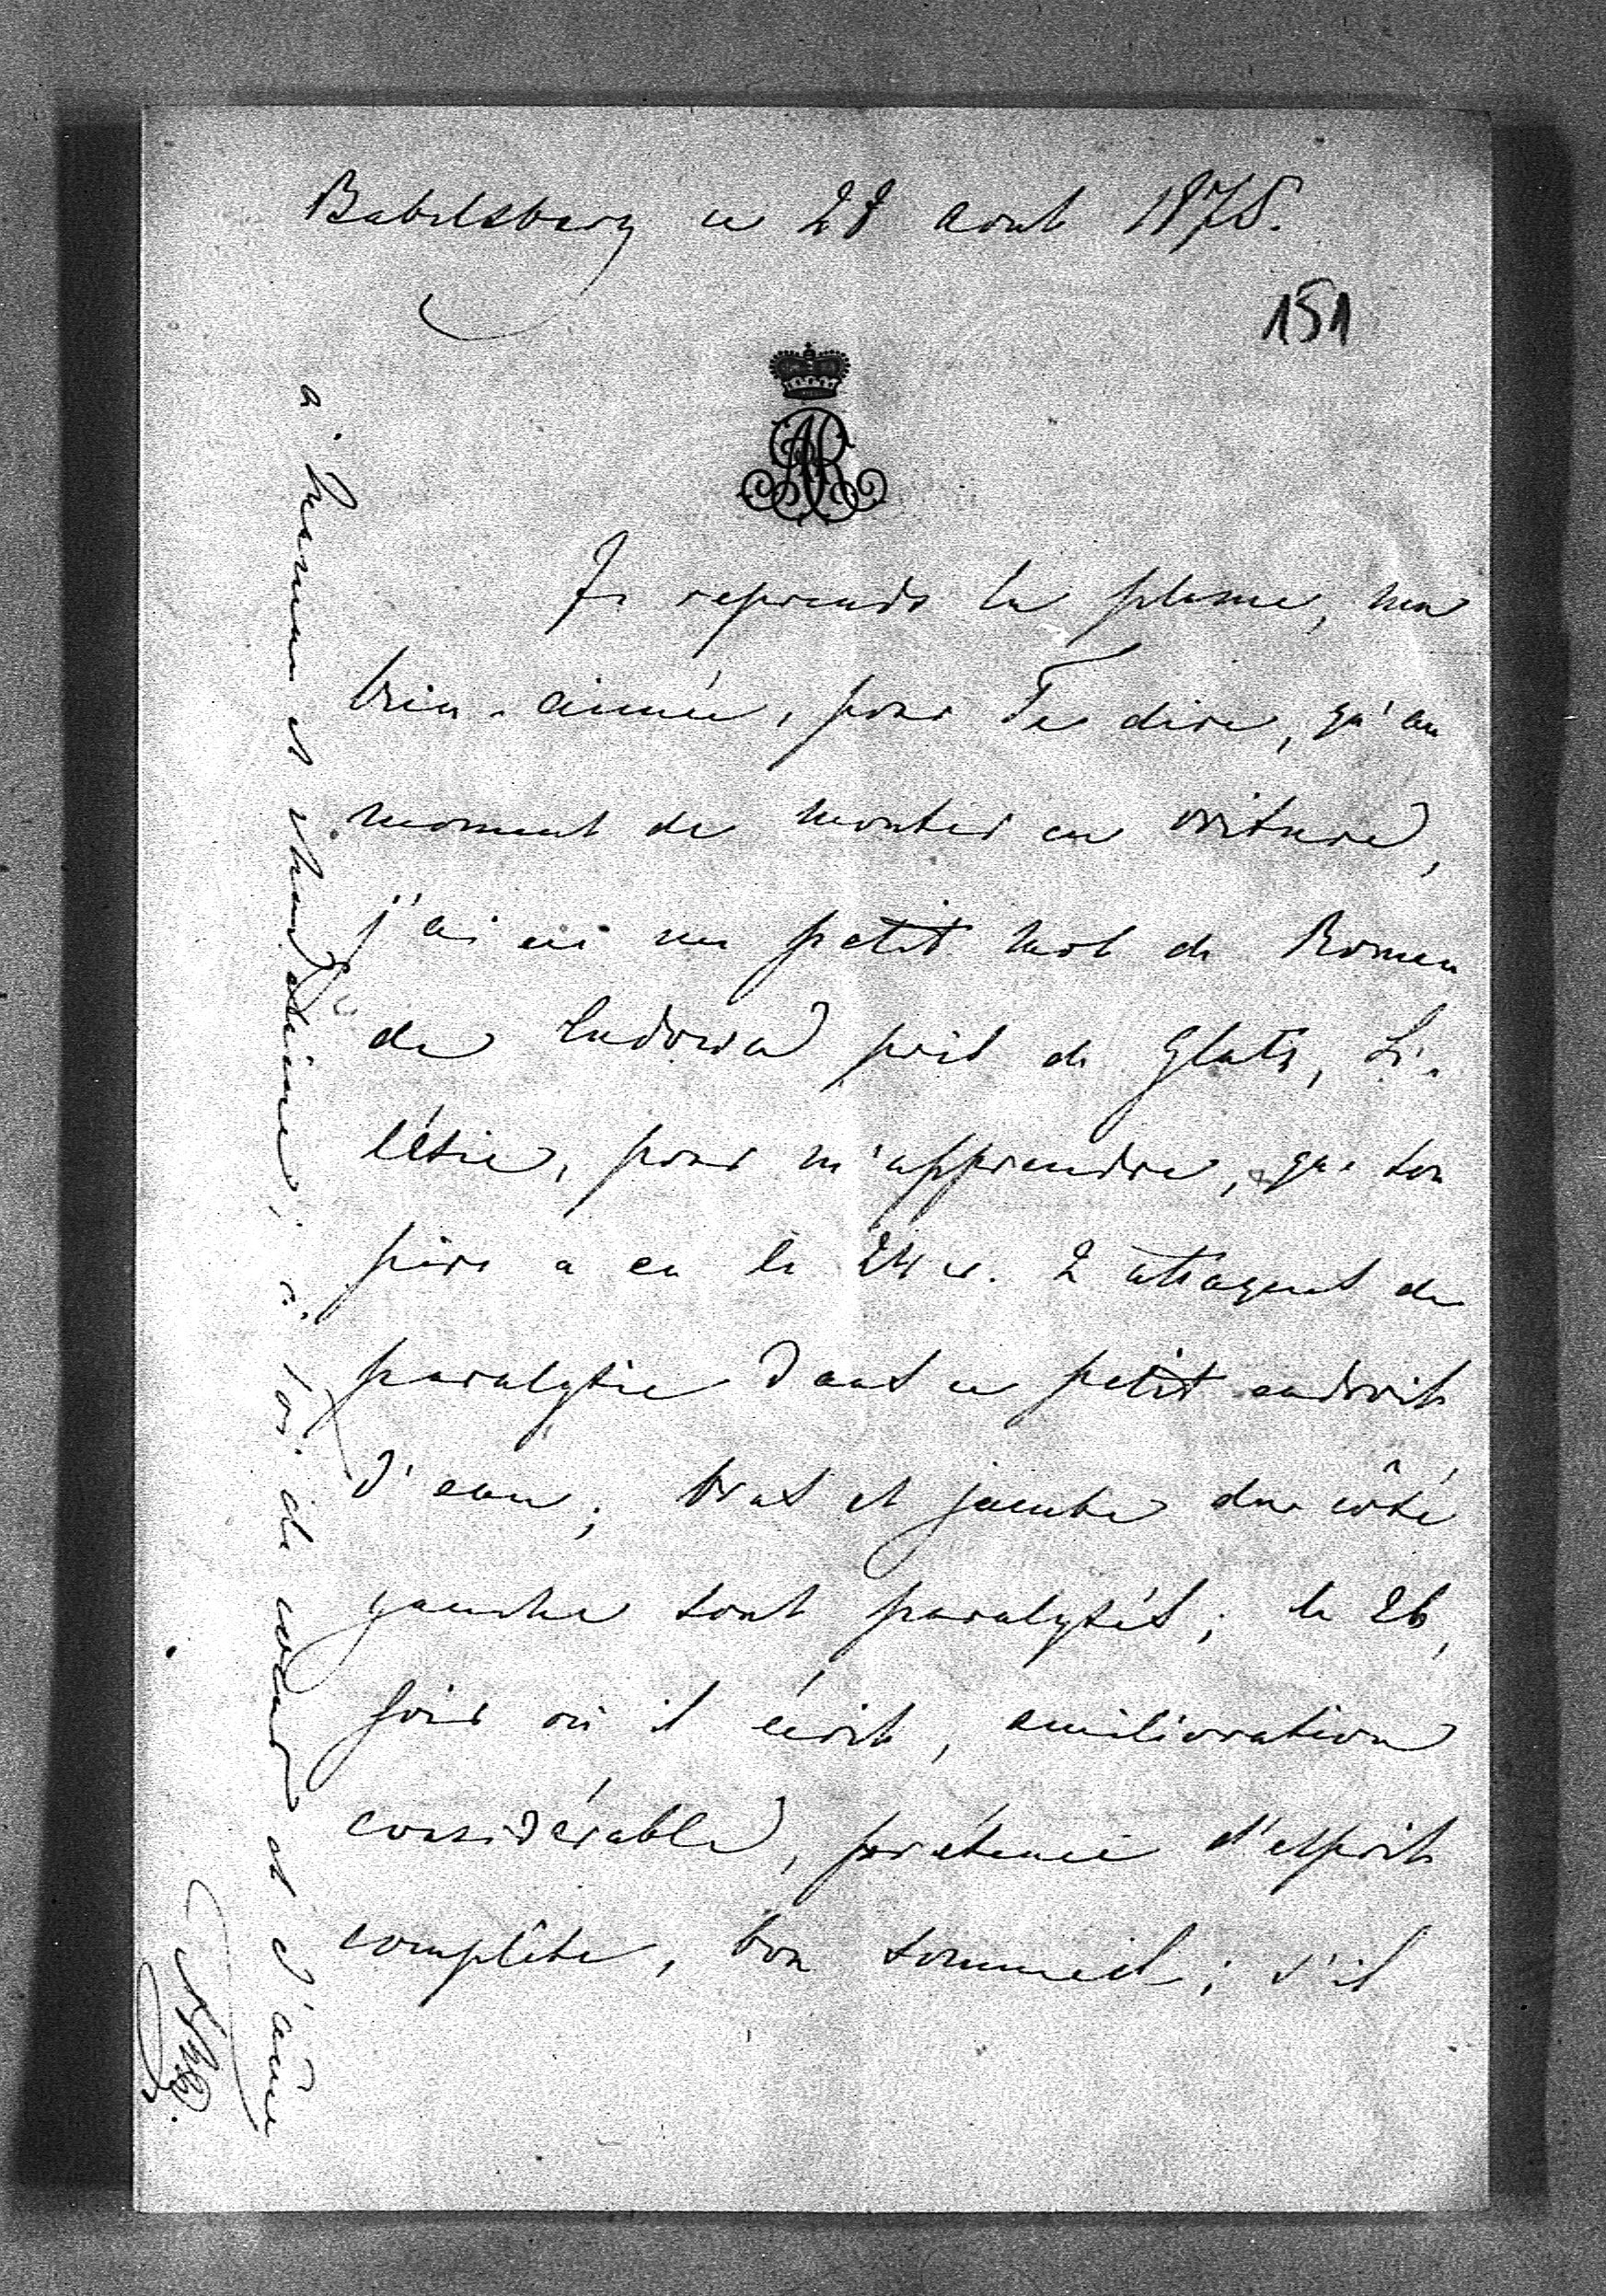 Babelsberg ce 28 aout 1878.
151
AR
Je reprends la plume, ma
bien-aimée, pour Te dire, qu'au
moment de monter en voiture,
j'ai eu un petit mot de Romeu
de Cudowa près de Glatz, Si-
lésie, pour m'apprendre, que son
père a eu le 24 c. 2 attaques de
paralysie dans ce petit endroit
d'eau; bras et jambe du côté
gauche sont paralysés; le 26,
jour où il écrit, amélioration
considérable, présence d'esprit
complète, bon sommeil; s'il
a. et à Toi de coeur et d'âme